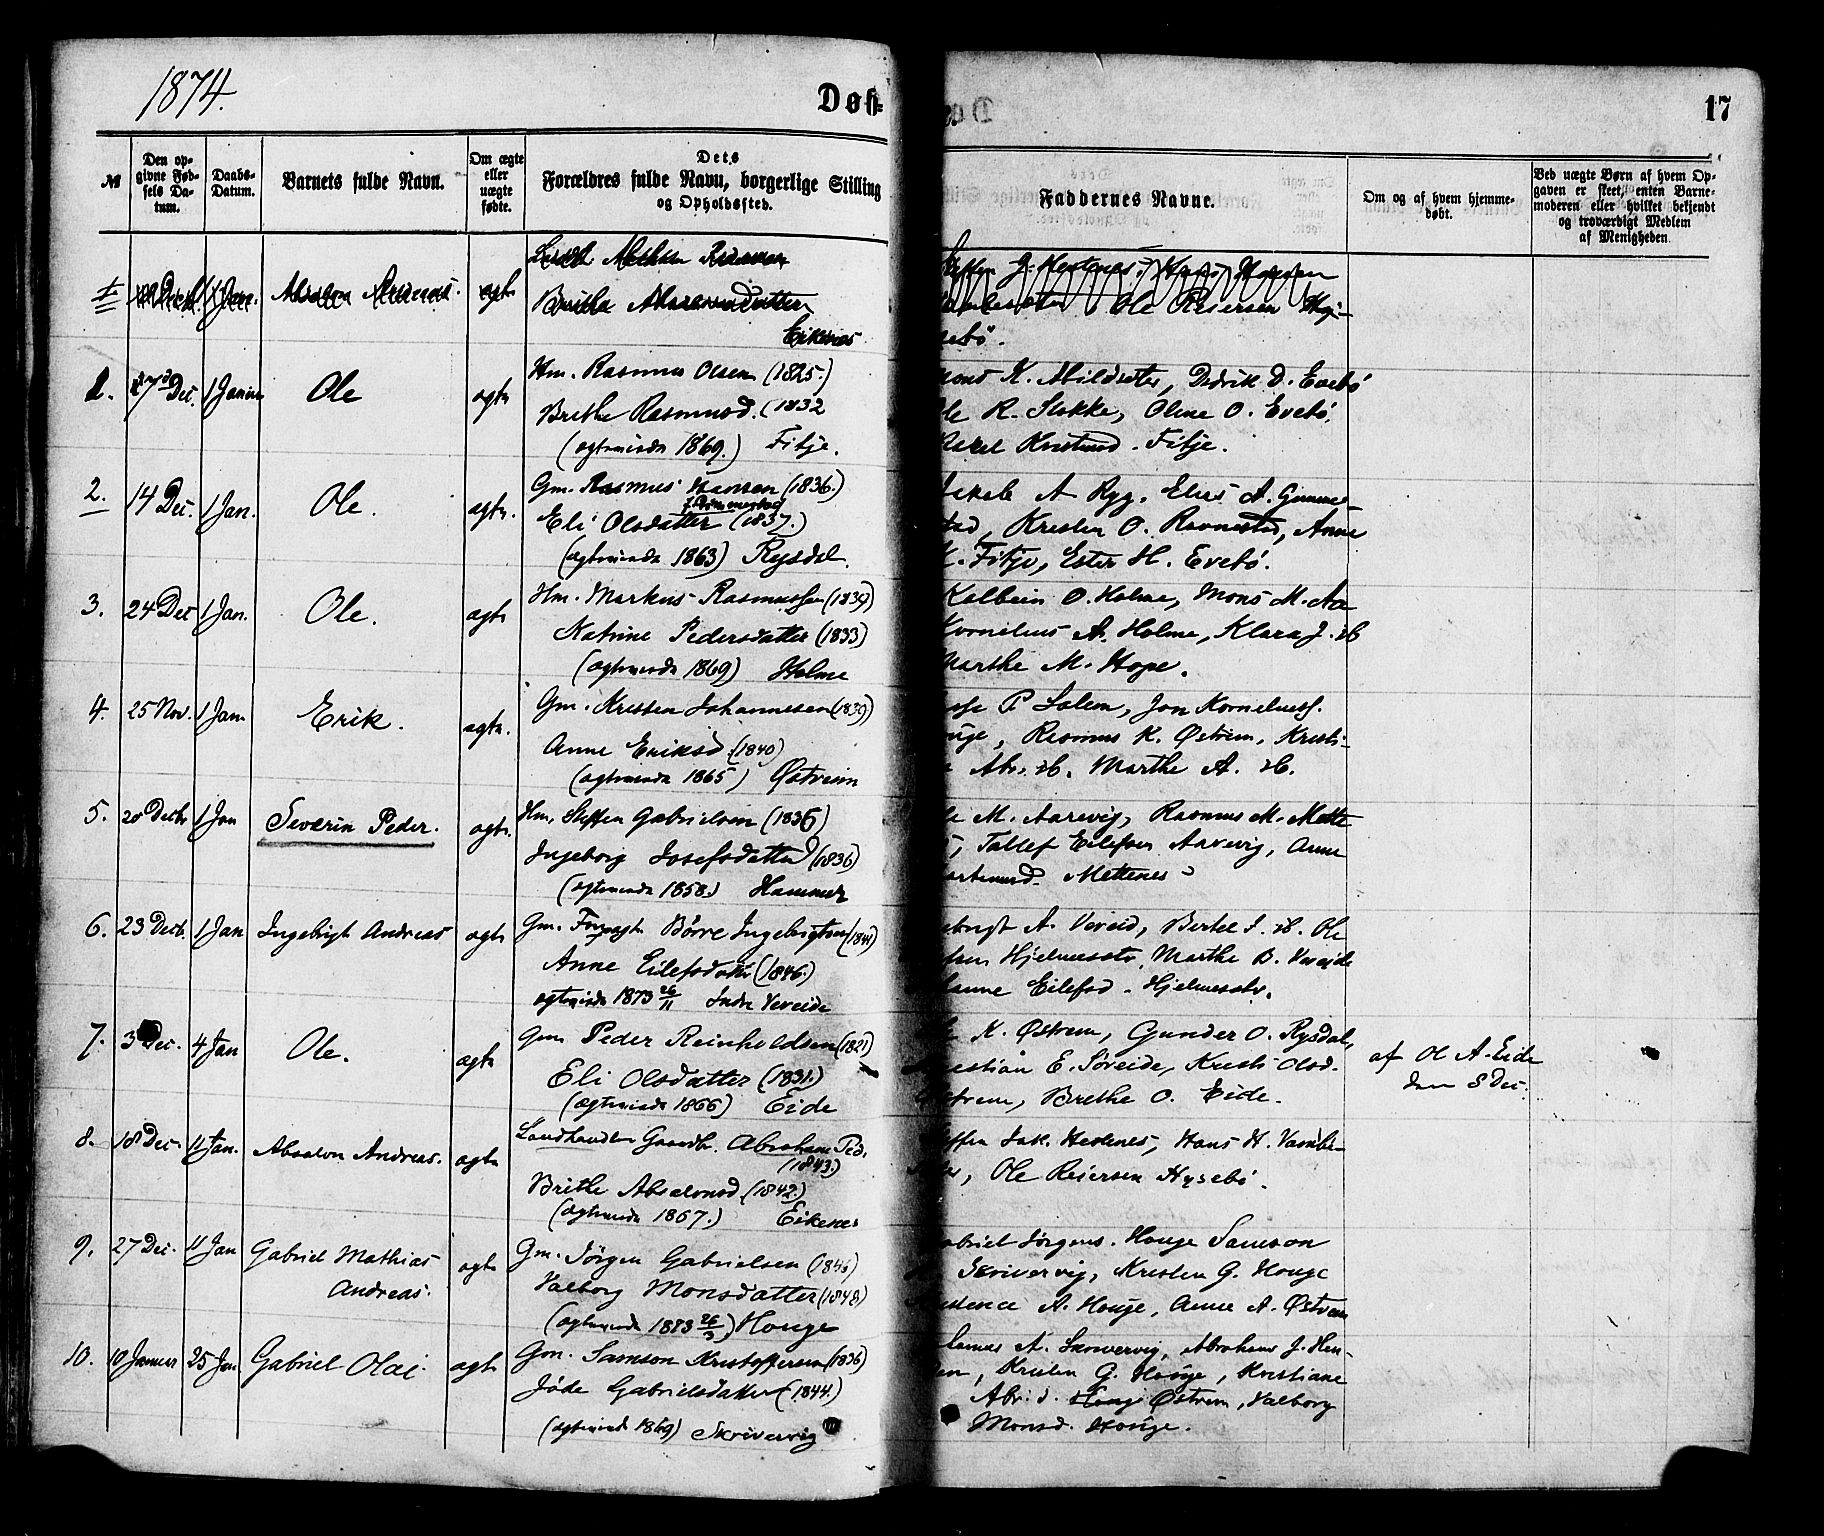 1874.
Døb-
17
№
Den op-
givne Fød-
sels Da-
tum.
Daabs-
Datum.
Barnets fulde Navn.
Om ægte
eller
uægte
fødte.
Dets
Forældres fulde Navn, borgerlige Stilling
og Opholdssted.
Faddernes Navne.
Om og af hvem hjemme-
døbt.
Ved uægte Børn af hvem Op-
gaven er skeet, enten Barne-
moderen eller hvilket bekjendt
og troværdigt Medlem
af Menigheden.
Absalon Andreas. ægte
Britha Absalonsdatter
Eikenæs
Ole Reiersen Hy-
sebø.
1. Dec. 1 Januar Ole ægte Hm. Rasmus Olsen (1825.)
Brithe Rasmusd. (1832
(ægteviede 1869.) Fitje.
K. Mildsæter, Dedrik D. Evebø
R. Slokke, Oline O. Evebø,
Fitje.
2. 14 Dec. 1 Jan. Ole. ægte. Gm. Rasmus Hansen (1836.)
Eli Olsdatter (1837.)
(ægteviede 1863) Rysdal.
A Ryg. Elias A. Gimme-
stad, Kristen O. Ravnestad, Anne
K. Fitje, Ester H. Evebø.
3. 24 Dec 1 Jan. Ole. ægte Hm. Markus Rasmussen (1839)
Katrine Pedersdatter (1833)
(ægteviede 1869) Holme
Kolbein O. Holme, Mons M. Aa
Kornelius A. Holme, Klara J. ib
Marthe M. Hope.
4. 25 Nov. 1 Jan Erik. ægte. Gm. Kristen Johannesen (1839)
Anne Eriksd. (1840)
(ægteviede 1865) Østreim
P Solem, Jon Korneliuss.
Houge, Rasmus K. Østrem, Kristi-
Abr. ib. Marthe A. ib.
5. 20 Decb 1 Jan Severin Peder. ægte. Hm. Steffen Gabrielsen (1836)
Ingeborg Josefsdatter (1836)
(ægteviede 1858.) Hammer
M. Aarevig, Rasmus M. Mette
Tollef Eilefsen Aarevig, Anne
Mettenes
6. 23 Decb. 1 Jan Ingebrigt Andreas ægte Gm. Børre Ingebrigtsen (1841)
Anne Eilefsdatter (1846.)
ægteviede 1873 26/11 Indre Vereide
A. Vereid, Bertel I. ib. Ole
Hjelmesæter, Marthe B. Vereide
Eilefsd. Hjelmesæter.
7. 3 Dec. 4 Jan Ole. ægte Gm Peder Reinholdsen (1821)
Eli Olsdatter (1831.)
(ægteviede 1866) Eide
K. Østrem, Gunder O. Rysdal,
Kristian E. Søreide, Kristi Olsd.
Østrem, Brethe O. Eide.
af Ol A. Eide
den 8 Dec.
8. 18 Dec. 11 Jan. Absalon Andreas. ægte Landhandler Gaardbr. Abraham Ped.
(1843.)
Brithe Absalonsd (1842.)
(ægteviede 1867.) Eikenæs
Steffen Jak. Hestenes, Hans H. Vambe-
Ole Reiersen Hysebø.
9. 27 Dec. 11 Jan Gabriel Mathias
Andreas. ægte Gm. Jörgen Gabrielsen
Valborg Monsdatter (1848)
(ægteviede 1873 26/3) Houge
Gabriel Jørgens. Houge Samson
Skrivervig, Kristen G. Houge
A. Houge, Anne A. Østrem
10. 10 Januar 25 Jan Gabriel Olai. ægte Gm. Samson Kristoffersen (1836)
Jøde Gabrielsdatter (1844.)
(ægteviede 1869) Skrivervig
A. Skrivervig, Abraham J. Hen-
Kristen G. Houge, Kristiane
Abr. d. Østrem, Valborg
Monsd. Houge.